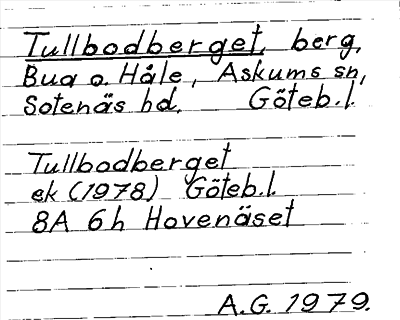 Tullbodberget, berg,
Bua o. Håle, Askums sn,
Sotenäs hd. Göteb.l.
Tullbodberget
ek (1978) Göteb.l.
8A 6h Hovenäset
A.G. 1979.